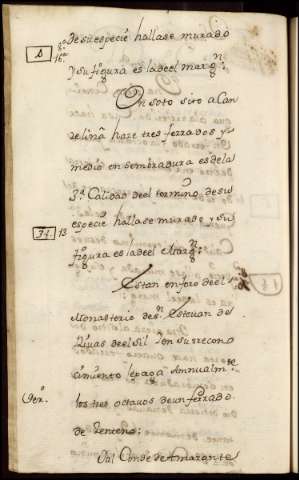 de su especie hallase murado
y su figura es la deel marg.n
Un soto siro a Can
delina haze tres ferrados y
medio en sembradura es de la
3.ª Calidad deel termino de su
especie hallase murado y su
13
figura es la deel Marg.n
Estan en foro deel
Monasterio de S.n Estevan de
Rivas de el Sil en su recono
cimiento le paga Annualm.te
los tres octavos de un ferrado
de Zenteno:
Al Conde de Amarante